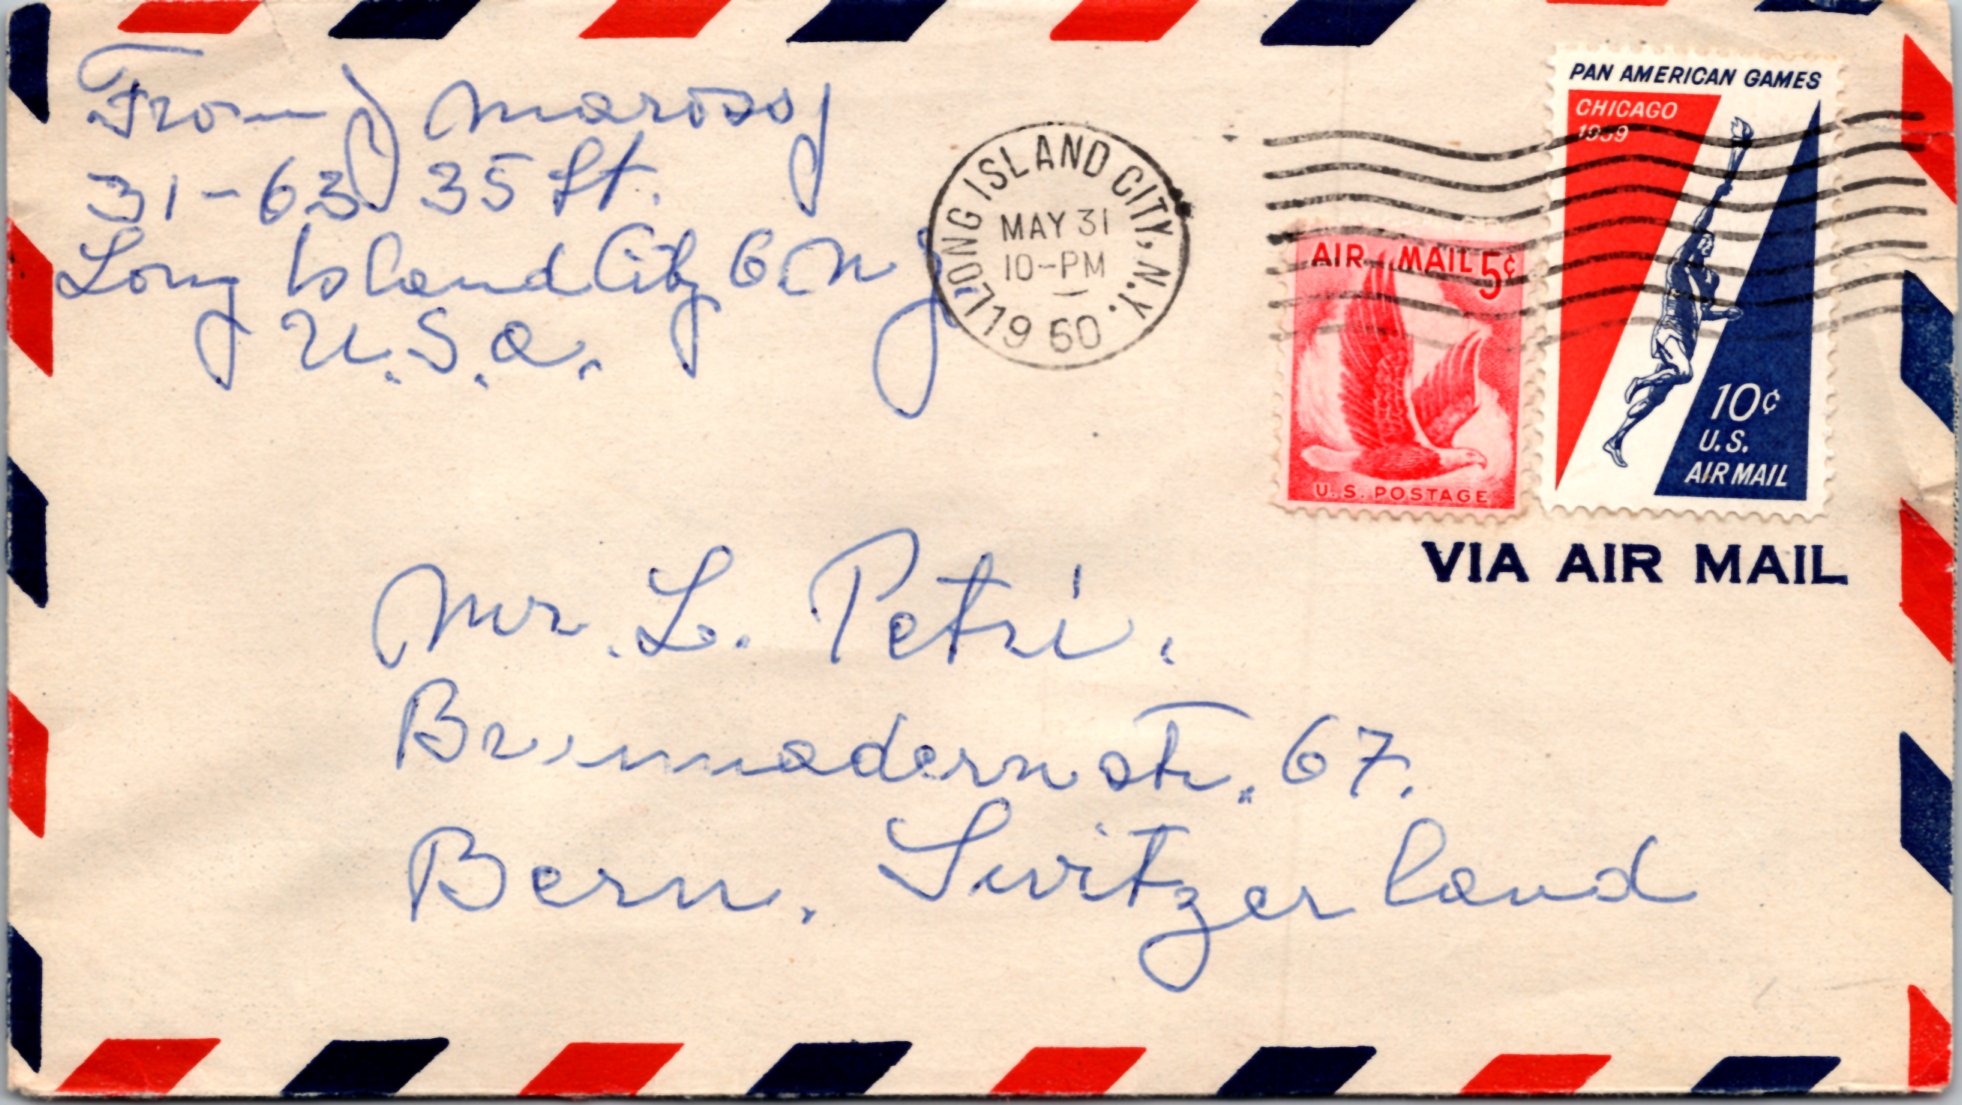 From J Marossy
31-63 35 St.
Long Island City 6. N Y
U.S.A.
LONG ISLAND CITY, N.Y.
MAY 31
10-PM
1960
PAN AMERICAN GAMES
CHICAGO
1959
10¢
U.S.
AIR MAIL
AIR MAIL 5¢
U.S. POSTAGE
VIA AIR MAIL
Mr. L. Petri.
67.
Bern. Switzerland